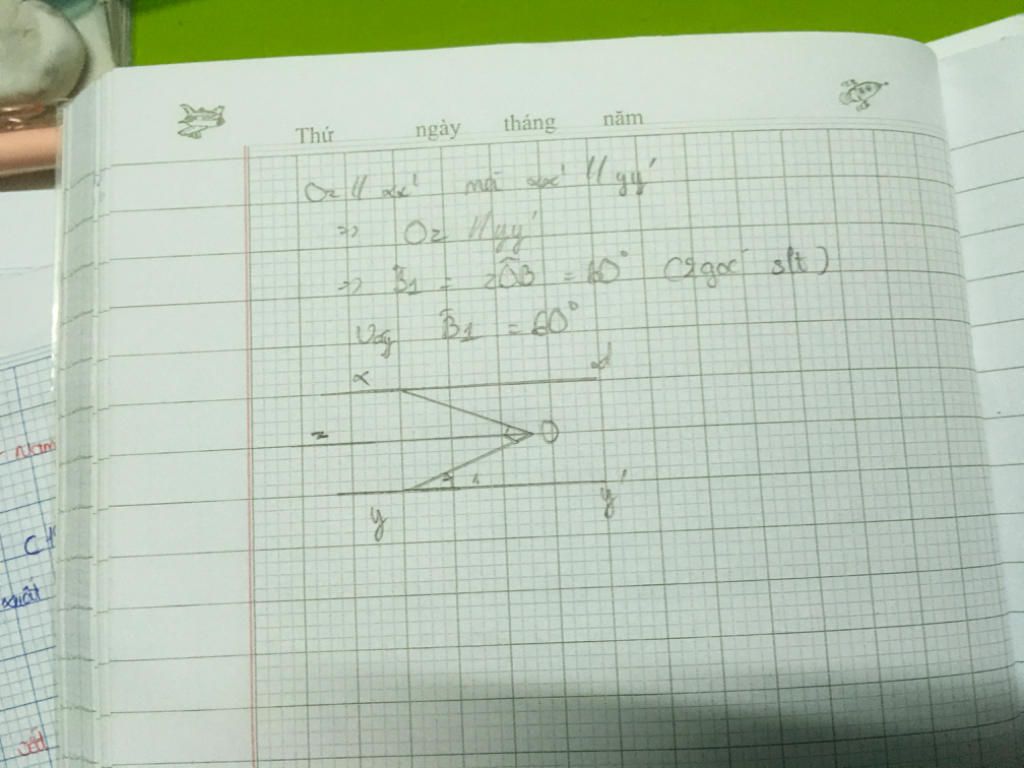 Thứ ngày tháng năm
Oz // xx' mà xx' // yy'
=> Oz // yy'
=> B̂1 = zÔB = 60° (2 góc slt)
Vậy B̂1 = 60°
x
z O
1
y y'
Nam
xuất